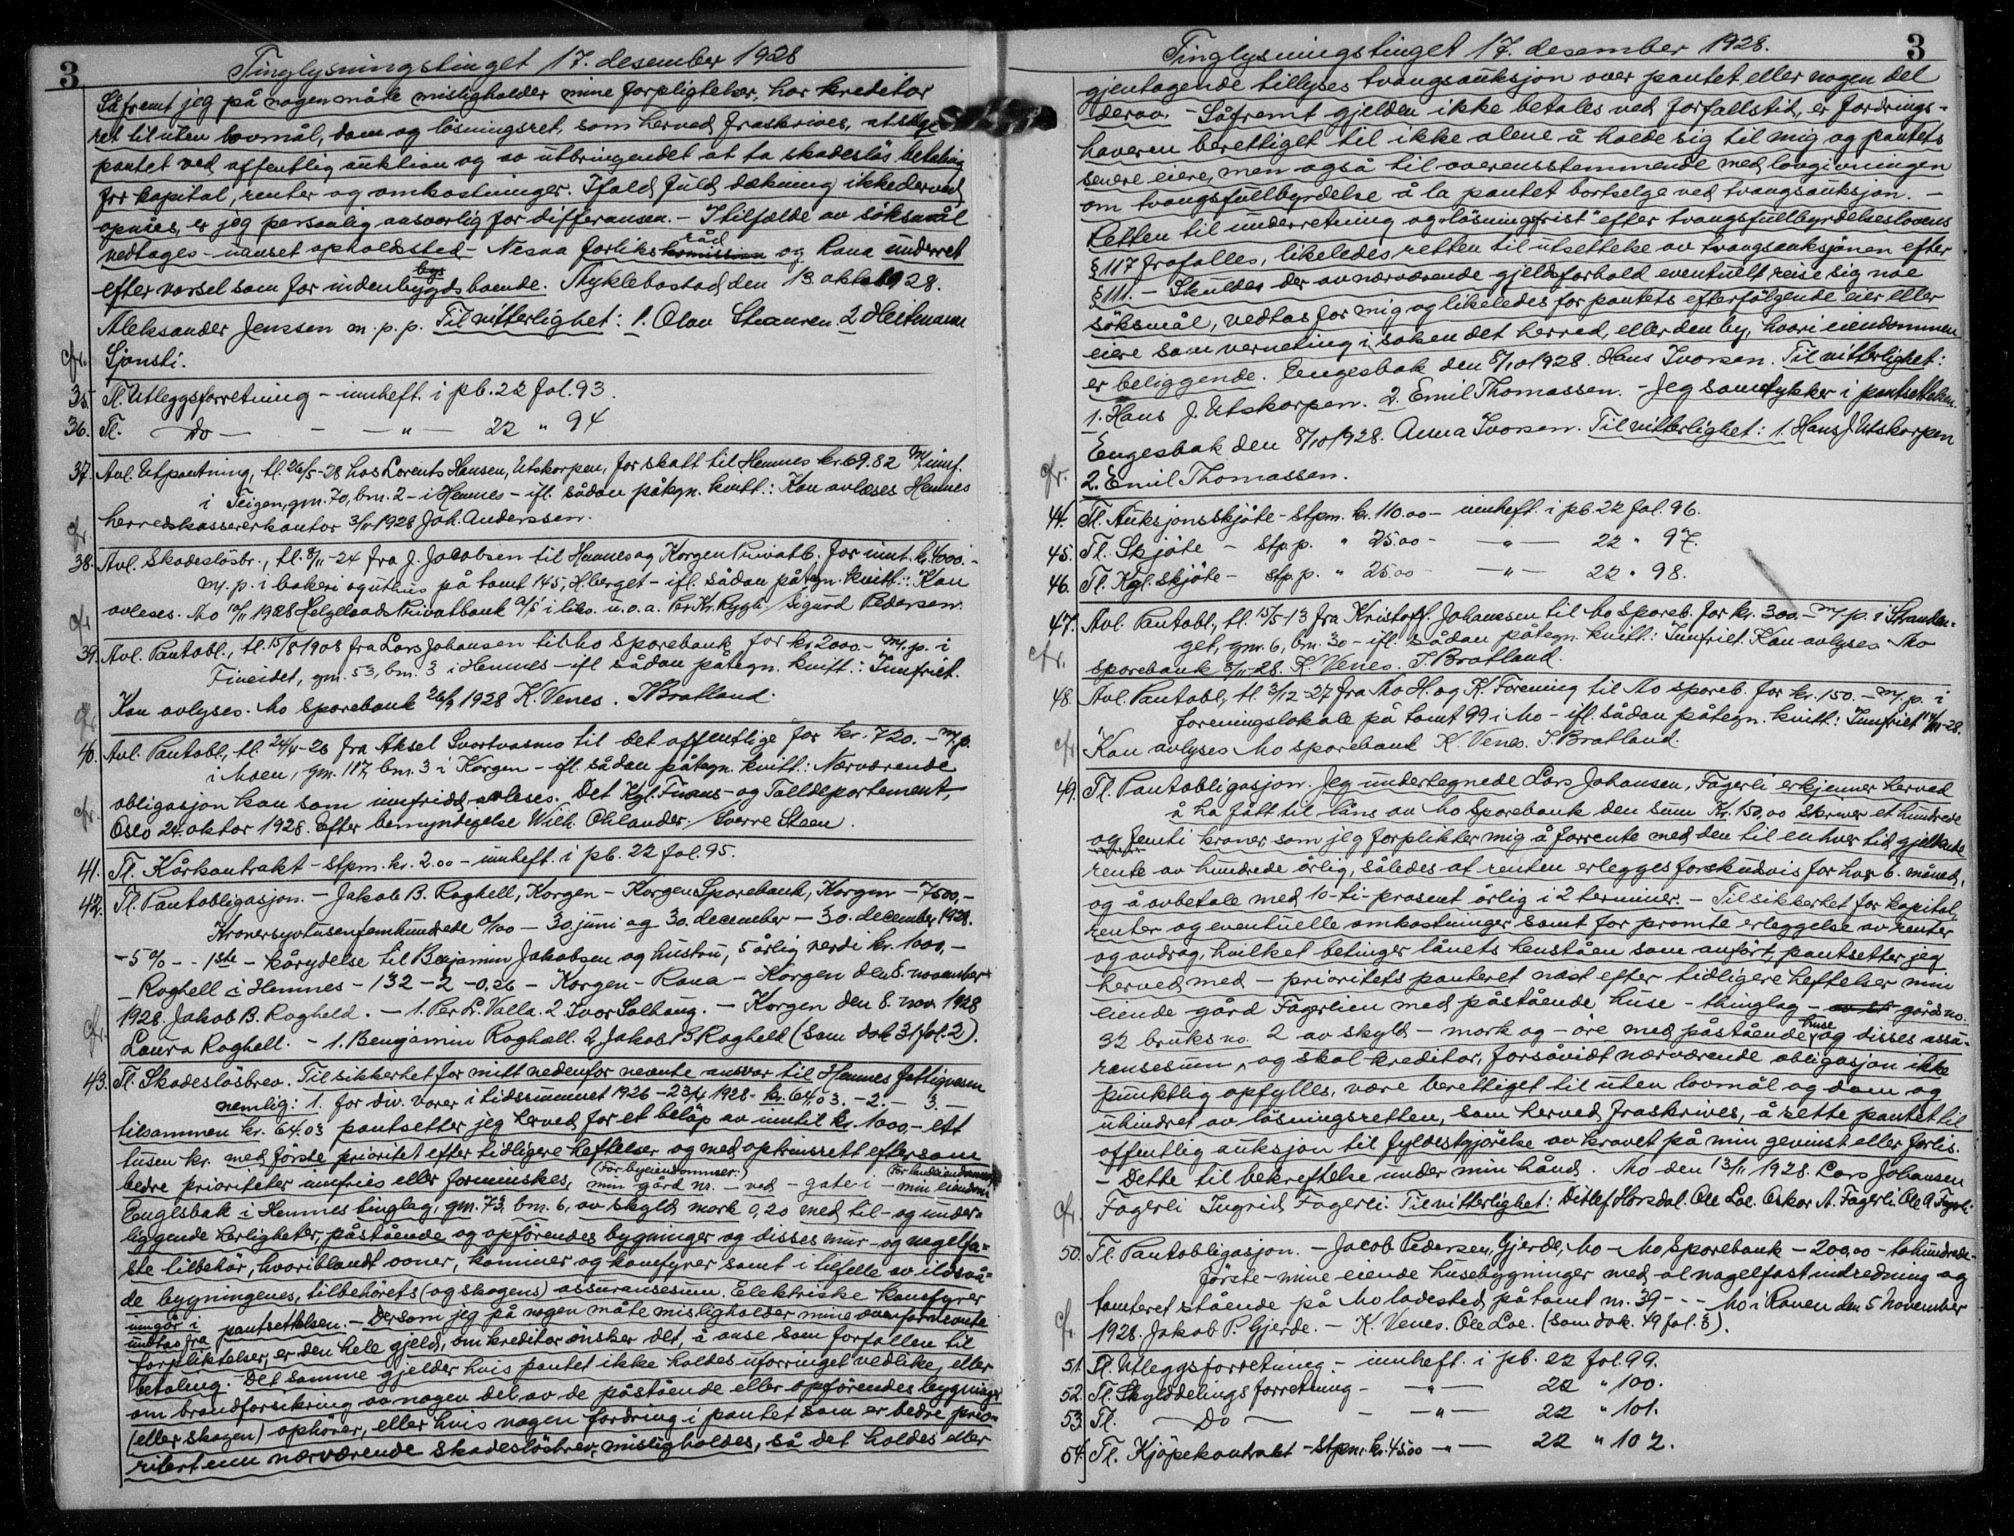 3
Tinglysningstinget 17. desember 1928
Såfremt jeg på nogen måte misligholder mine forpligtelser, har kreditor
ret til uten lovmål, dom og løsningsret, som herved fraskrives, at sælge
pantet ved offentlig auktion og av utbringendet at ta skadesløs betaling
for kapital, renter og omkostninger. Ifald fuld dækning ikke derved
opnåes, er jeg personlig ansvarlig for differansen. – I tilfælde av søksmål
vedtages – uanset opholdssted – Nesna forliksråd og Rana underret
efter varsel som for indenbygdsboende. Myklebostad den 13 oktob. 1928.
Aleksander Jenssen m. p. p. Til vitterlighet: 1. Olav Stauren. 2 Heitmann
cfr. Sjonsti.
35. Tl. Utleggsforretning – innheft. i pb. 22 fol. 93.
36. Tl. – Do – – – " – 22 " 94
37. Avl. Utpantning, tl. 26/5-28 hos Lorents Hansen, Utskorpen, for skatt til Hemnes kr. 69.82 m/innf.
i Teigen, gm. 70, bm. 2 – i Hemnes – ifl. sådan påtegn. kvitt.: Kan avlæses Hemnes
cfr herredskassererkontor 3/11 1928 Joh. Anderssen.
38. Avl. Skadesløsbr., tl. 8/11-24 fra J. Jacobsen til Hemnes og Korgen Privatb. for innt. kr. 4000.-
m. p. i bakeri og uthus på tomt 145, Hberget – ifl. sådan påtegn. kvitt.: Kan
cfr avleses. Mo 10/11 1928 Helgelands Privatbank A/S i likv. u.o.a. Per Kr. Rygh. Sigurd Pedersen.
39. Avl. Pantobl., tl. 15/8 1908 fra Lars Johansen til Mo Sparebank for kr. 2000.- m. p. i
Fineidet, gm. 53, bm. 3 i Hemnes – ifl sådan påtegn. kvitt.: Innfriet.
cfr Kan avlyses. Mo Sparebank 26/9 1928 K. Venes. J Bratland.
40. Avl. Pantobl., tl. 24/4-26 fra Aksel Svartvasnes til det offentlige for kr. 720.- m. p.
i Moen, gm. 117, bm. 3 i Korgen – ifl. sådan påtegn. kvitt.: Nærværende
cfr. obligasjon kan som innfridd avleses. Det Kgl. Finans- og Tolldepartement,
Oslo 24. oktor 1928. Efter bemyndigelse Wilh. Ohlander. / Sverre Steen.
41. Tl. Kårkontrakt – stpm. kr. 2.00 – innheft. i pb. 22 fol. 95.
42. Tl. Pantobligasjon. – Jakob B. Røghell, Korgen – Korgen Sparebank, Korgen – 7500,-
Kroner syvtusenfemhundrede 0/100 – 30. juni og 30. december – 30. december 1928.
– 5 % – – 1ste – kårydelse til Benjamin Jakobsen og hustru, 5 årlig verdi kr. 1000,-
– Røghell i Hemnes – 132 – 2 – 0,26 – Korgen – Rana – Korgen den 8. november
1928. Jakob B. Røgheld. – 1. Per Lr. Valla. 2 Ivar Solhaug. – Korgen den 8. nov. 1928
cfr. Laura Røghell. – 1. Benjamin Røghell. 2 Jakob B. Røgheld (Som dok 31 fol. 2).
43. Tl. Skadesløsbrev. Til sikkerhet for mitt nedenfor nevnte ansvar til Hemnes fattigvesen
nemlig: 1. for div. varer i tidsrummet 1926 – 23/4 1928 – kr. 64,03. – 2. – 3. –
tilsammen kr. 64.03 pantsetter jeg herved for et beløp av inntil kr. 1000,- ett
tusen kr. med første prioritet efter tidligere heftelser og med optrinsrett eftersom
bedre prioriteter innfries eller forminskes, (For byeiendommer:) min gård nr. – ved – gate i – (For landeiendommer) min eiendom
Engesbak i Hemnes tinglag, gm. 73, bm. 6, av skyld mark 0,20 med til- og under-
liggende herligheter, påstående og opførendes bygninger og disses mur- og nagelfa-
ste tilbehør, hvoriblandt ovner, kaminer og komfyrer samt i tilfelle av ildsvå-
de bygningenes, tilbehørets (og skogens) assuransesum. Elektriske komfyrer
inngår i
unntas fra pantsettelsen. – Dersom jeg på nogen måte misligholder mine ovenfornevnte
forpliktelser, er den hele gjeld, om kreditor ønsker det, å anse som forfallen til
betaling. Det samme gjelder hvis pantet ikke holdes uforringet vedlike, eller
om brandforsikring av nogen del av de påstående eller opførendes bygninger
(eller skogen) ophører, eller hvis nogen fordring i pantet som er bedre prio-
ritert enn nærværende skadesløsbrev, misligholdes, så det holdes eller
3
Tinglysningstinget 17. desember 1928.
gjentagende tillyses tvangsauksjon over pantet eller nogen del
derav. – Såfremt gjelden ikke betales ved forfallstid, er fordrings-
haveren berettiget til ikke alene å holde sig til mig og pantets
senere eiere, men også til overensstemmende med lovgivningen
om tvangsfullbyrdelse å la pantet bortselge ved tvangsauksjon. –
Retten til underretning og "løsningsfrist" efter tvangsfullbyrdelseslovens
§ 117 frafalles, likeledes retten til utsettelse av tvangsauksjonen efter
§ 111. – Skulde der av nærværende gjeldsforhold eventuelt reise sig noe
søksmål, vedtas for mig og likeledes for pantets efterfølgende eier eller
eiere som verneting i saken det herred, eller den by, hvori eiendommen
er beliggende. Engesbak den 8/10 1928. Hans Ivarsen. Til vitterlighet:
1. Hans J. Utskorpen. 2. Emil Thomassen. – Jeg samtykker i pantsettelsen.
Engesbak den 8/10 1928. Anna Ivarsen. Til vitterlighet: 1. Hans J Utskorpen
cfr. 2. Emil Thomassen.
44. Tl. Auksjonsskjøte – stpm. kr. 110.00 – innheft. i pb. 22 fol. 96.
45. Tl. Skjøte – stp.p. " 25.00 – – " – 22 " 97.
46. Tl. Kgl. skjøte – stp.p. " 25.00 – " – 22 " 98.
47. Avl. Pantobl., tl. 15/5-13 fra Kristoff. Johansen til Mo Spareb. for kr. 300.- m/p. i Stranden-
get, gm. 6, bm. 30 – ifl. sådan påtegn. kvitt.: Innfriet. Kan avlyses Mo
cfr. sparebank 8/11-28. K. Venes. J. Bratland.
48. Avl. Pantobl., tl 3/12-27 fra Mo H. og K. Forening til Mo spareb. for kr. 150.- m/p. i
foreningslokale på tomt 99 i Mo – ifl. sådan påtegn. kvitt.: Innfriet 14/11-28.
cfr Kan avlyses Mo sparebank K. Venes. J. Bratland.
49. Tl. Pantobligasjon. Jeg undertegnede Lars Johansen, Fagerli erkjenner herved
å ha fått til låns av Mo Sparebank den sum Kr. 150,00 skriver et hundrede
og femti kroner som jeg forplikter mig å forrente med den til enhver tid gjeldende
rente av hundrede årlig, således at renten erlegges forskudsvis for hver 6. måned,
og å avbetale med 10 – ti – prosent årlig i 2 terminer. – Til sikkerhet for kapital,
renter og eventuelle omkostninger samt for promte erleggelse av renter
og avdrag, hvilket betinger lånets henståen som anført, pantsetter jeg
herved med – prioritets panteret næst efter tidligere heftelser min
eiende gård Fagerlien med påstående huse – thinglag – gårds no.
32 bruks no. 2 av skyld – mark og – øre med påstående huse og disses assu-
ransesum, og skal kreditor, forsåvidt nærværende obligasjon ikke
punktlig opfylles, være berettiget til uten lovmål og dom og
uhindret av løsningsretten, som herved fraskrives, å sette pantet til
offentlig auksjon til fyldestgjørelse av kravet på min gevinst eller forlis.
– Dette til bekreftelse under min hånd. Mo den 13/11 1928. Lars Johansen
cfr. Fagerli Ingrid Fagerli. Til vitterlighet: Ditlef Horsdal. Ole Loe. Oskar A. Fagerli. Ole A Fagerli
50. Tl. Pantobligasjon. – Jacob Pedersen, Gjerde, Mo – Mo Sparebank – 200,00 – tohundrede –
første – mine eiende husebygninger med al nagelfast indredning og
tomteret stående på Mo ladested på tomt nr. 39 – – – Mo i Ranen den 5 November
cfr. 1928. Jakob P. Gjerde. – K. Venes. Ole Loe. (Som dok. 49 fol. 3).
51. Tl. Utleggsforretning – innheft. i pb. 22 fol. 99.
52. Tl. Skylddelingsforretning – – " – 22 " 100.
53. Tl. – Do – – – " – 22 " 101.
54. Tl. Kjøpekontrakt – Stpm. kr. 45.00 – " – 22 " 102.